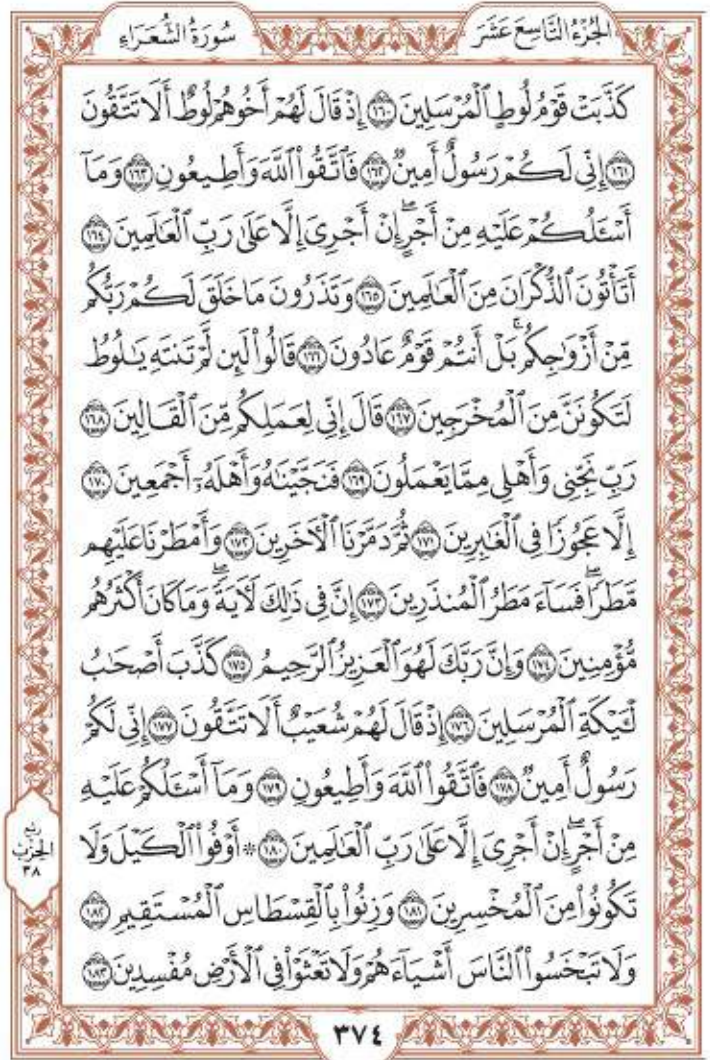 الجُزْءُ التَّاسِعَ عَشَرَ
سُورَةُ الشُّعَرَاءِ
كَذَّبَتْ قَوْمُ لُوطٍ ٱلْمُرْسَلِينَ ١٦٠ إِذْ قَالَ لَهُمْ أَخُوهُمْ لُوطٌ أَلَا تَتَّقُونَ
١٦١ إِنِّى لَكُمْ رَسُولٌ أَمِينٌ ١٦٢ فَٱتَّقُوا۟ ٱللَّهَ وَأَطِيعُونِ ١٦٣ وَمَآ
أَسْـَٔلُكُمْ عَلَيْهِ مِنْ أَجْرٍ ۖ إِنْ أَجْرِىَ إِلَّا عَلَىٰ رَبِّ ٱلْعَـٰلَمِينَ ١٦٤
أَتَأْتُونَ ٱلذُّكْرَانَ مِنَ ٱلْعَـٰلَمِينَ ١٦٥ وَتَذَرُونَ مَا خَلَقَ لَكُمْ رَبُّكُم
مِّنْ أَزْوَٰجِكُم ۚ بَلْ أَنتُمْ قَوْمٌ عَادُونَ ١٦٦ قَالُوا۟ لَئِن لَّمْ تَنتَهِ يَـٰلُوطُ
لَتَكُونَنَّ مِنَ ٱلْمُخْرَجِينَ ١٦٧ قَالَ إِنِّى لِعَمَلِكُم مِّنَ ٱلْقَالِينَ ١٦٨
رَبِّ نَجِّنِى وَأَهْلِى مِمَّا يَعْمَلُونَ ١٦٩ فَنَجَّيْنَـٰهُ وَأَهْلَهُۥٓ أَجْمَعِينَ ١٧٠
إِلَّا عَجُوزًا فِى ٱلْغَـٰبِرِينَ ١٧١ ثُمَّ دَمَّرْنَا ٱلْـَٔاخَرِينَ ١٧٢ وَأَمْطَرْنَا عَلَيْهِم
مَّطَرًا ۖ فَسَآءَ مَطَرُ ٱلْمُنذَرِينَ ١٧٣ إِنَّ فِى ذَٰلِكَ لَـَٔايَةً ۖ وَمَا كَانَ أَكْثَرُهُم
مُّؤْمِنِينَ ١٧٤ وَإِنَّ رَبَّكَ لَهُوَ ٱلْعَزِيزُ ٱلرَّحِيمُ ١٧٥ كَذَّبَ أَصْحَـٰبُ
لْـَٔيْكَةِ ٱلْمُرْسَلِينَ ١٧٦ إِذْ قَالَ لَهُمْ شُعَيْبٌ أَلَا تَتَّقُونَ ١٧٧ إِنِّى لَكُمْ
رَسُولٌ أَمِينٌ ١٧٨ فَٱتَّقُوا۟ ٱللَّهَ وَأَطِيعُونِ ١٧٩ وَمَآ أَسْـَٔلُكُمْ عَلَيْهِ
مِنْ أَجْرٍ ۖ إِنْ أَجْرِىَ إِلَّا عَلَىٰ رَبِّ ٱلْعَـٰلَمِينَ ١٨٠ ۞ أَوْفُوا۟ ٱلْكَيْلَ وَلَا
تَكُونُوا۟ مِنَ ٱلْمُخْسِرِينَ ١٨١ وَزِنُوا۟ بِٱلْقِسْطَاسِ ٱلْمُسْتَقِيمِ ١٨٢
وَلَا تَبْخَسُوا۟ ٱلنَّاسَ أَشْيَآءَهُمْ وَلَا تَعْثَوْا۟ فِى ٱلْأَرْضِ مُفْسِدِينَ ١٨٣
ربع
الحزب
٣٨
٣٧٤